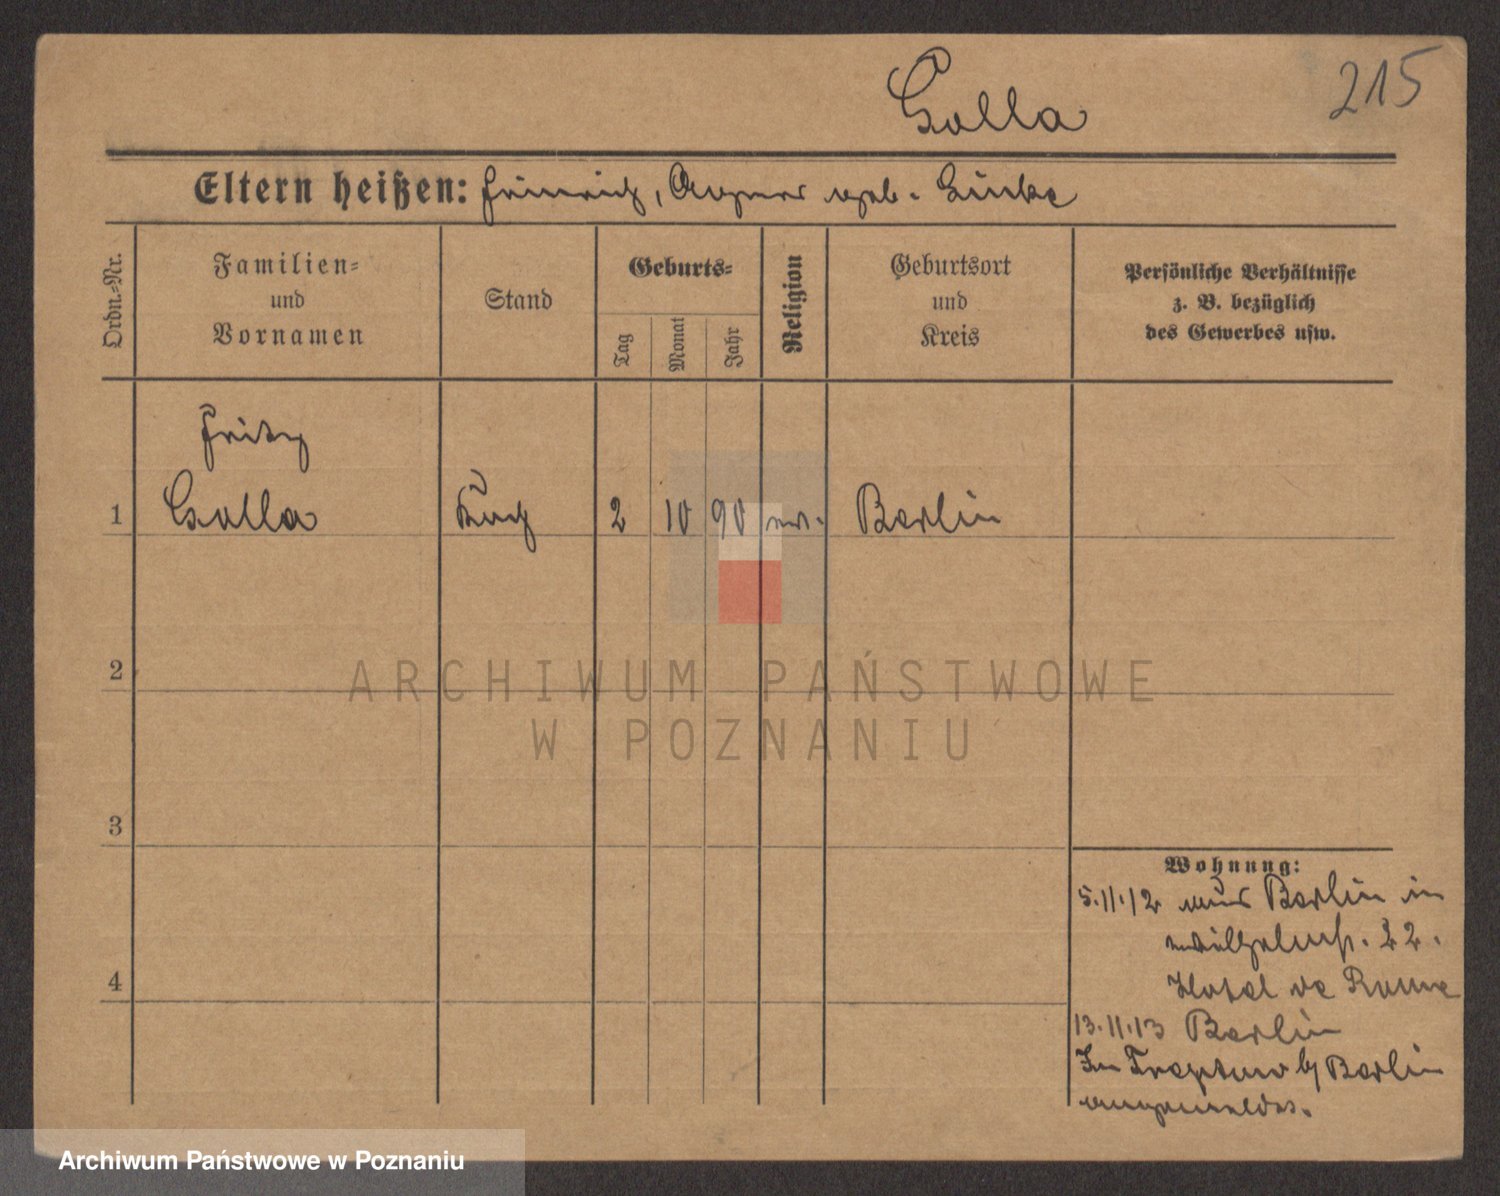 Golla
215
Eltern heißen: Heinrich, Agnes geb. Linke
Ordn.-Nr.
Familien-
und
Vornamen
Stand
Geburts-
Tag
Monat
Jahr
Religion
Geburtsort
und
Kreis
Persönliche Verhältnisse
z. B. bezüglich
des Gewerbes usw.
Fritz
1 Golla Koch 2 10 90 ev. Berlin
2
3
4
ARCHIWUM PAŃSTWOWE
W POZNANIU
Wohnung:
5.11.12 aus Berlin in
Wilhelmpl. 22.
Hotel de Rome
13.11.13 Berlin
In Treptow b/ Berlin
angemeldet.
Archiwum Państwowe w Poznaniu